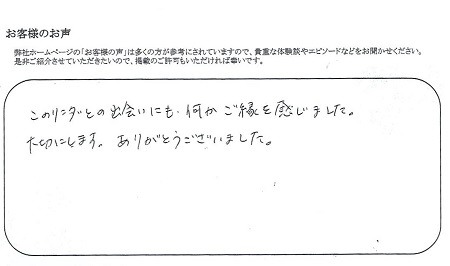 お客様のお声
弊社ホームページの「お客様の声」は多くの方が参考にされていますので、貴重な体験談やエピソードなどをお聞かせください。
是非ご紹介させていただきたいので、掲載のご許可もいただければ幸いです。
このリンダとの出会いにも何かご縁を感じました。
大切にします。ありがとうございました。